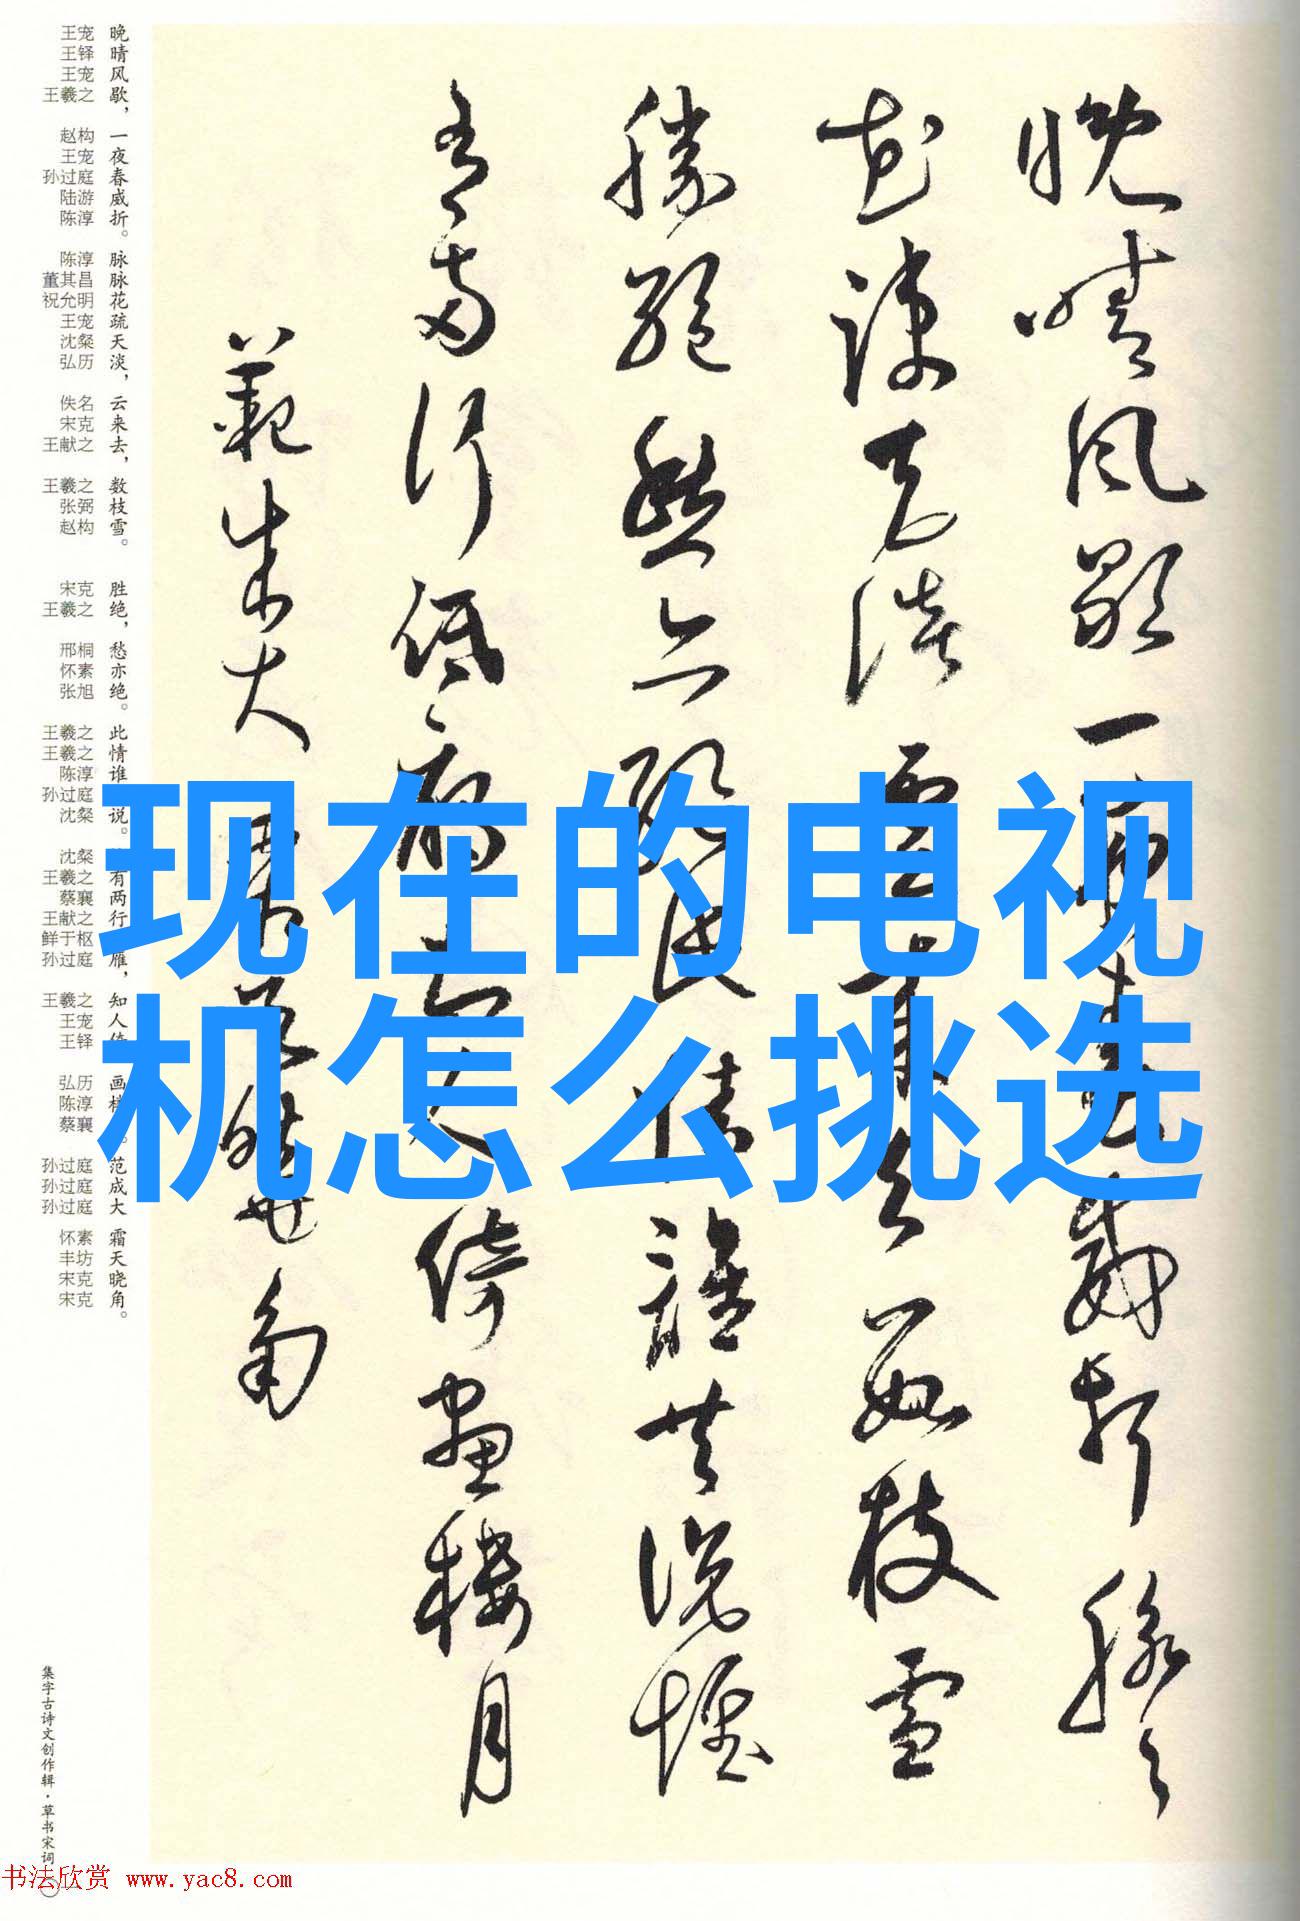 晚晴风歇一夜春威折脉脉
花疏天淡云来去数枝雪
胜绝愁亦绝此情谁共说惟
有两行低雁知人倚画楼月
范成大霜天晓角
现在的电视
机怎么挑选
晚晴风歇，一夜春威折。脉脉花疏天淡，云来去，数枝雪。
胜绝，愁亦绝。此情谁
说。
有两行
雁，知人
画
。范成大
霜天晓角。
王宠
王铎
王宠
王羲之
赵构
王宠
孙过庭
陆游
陈淳
陈淳
董其昌
祝允明
王宠
沈粲
弘历
佚名
宋克
王献之
王羲之
张弼
赵构
宋克
王羲之
邢桐
怀素
张旭
王羲之
王羲之
陈淳
孙过庭
沈粲
沈粲
王羲之
蔡襄
王献之
鲜于枢
孙过庭
王羲之
王宠
王铎
弘历
陈淳
蔡襄
孙过庭
孙过庭
孙过庭
怀素
丰坊
宋克
宋克
集字古诗文创作辑·草书宋词
书法欣赏 www.yac8.com